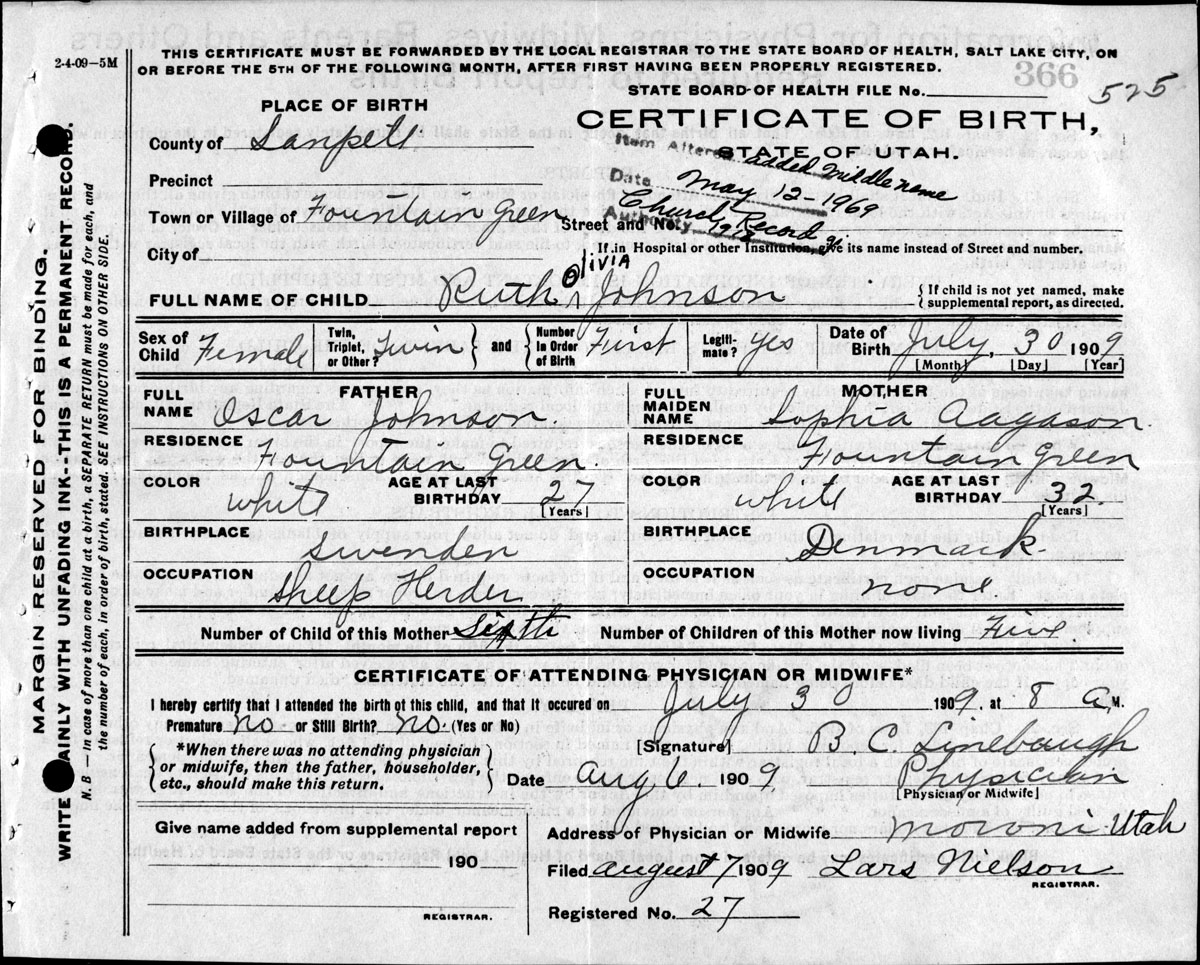 2-4-09--5M
THIS CERTIFICATE MUST BE FORWARDED BY THE LOCAL REGISTRAR TO THE STATE BOARD OF HEALTH, SALT LAKE CITY, ON
OR BEFORE THE 5TH OF THE FOLLOWING MONTH, AFTER FIRST HAVING BEEN PROPERLY REGISTERED.
366
STATE BOARD OF HEALTH FILE No. 525
PLACE OF BIRTH
CERTIFICATE OF BIRTH,
STATE OF UTAH.
County of Sanpete
Item Altered added middle name
Precinct
Date May 12-1969
Town or Village of Fountain Green Street and No.
Authority Church Record
City of
If in Hospital or other Institution, give its name instead of Street and number.
FULL NAME OF CHILD Ruth Olivia Johnson { If child is not yet named, make
supplemental report, as directed.
Sex of Child Female Twin, Triplet, or Other? Twin } and { Number in Order of Birth First Legiti-mate? Yes Date of Birth July, 30 1909
[Month] [Day] [Year]
FATHER MOTHER
FULL NAME Oscar Johnson. FULL MAIDEN NAME Sophia Aagason.
RESIDENCE Fountain Green. RESIDENCE Fountain Green
COLOR white AGE AT LAST BIRTHDAY 27 [Years] COLOR white AGE AT LAST BIRTHDAY 32 [Years]
BIRTHPLACE Swenden BIRTHPLACE Denmark.
OCCUPATION Sheep Herder OCCUPATION none
Number of Child of this Mother Sixth Number of Children of this Mother now living Five.
CERTIFICATE OF ATTENDING PHYSICIAN OR MIDWIFE*
I hereby certify that I attended the birth of this child, and that it occured on July 30 1909, at 8 a.M.
Premature no or Still Birth? no. (Yes or No)
[Signature] B C. Linebaugh
{ *When there was no attending physician
or midwife, then the father, householder,
etc., should make this return. }
Date Aug 6 1909 Physician
[Physician or Midwife]
Give name added from supplemental report
190
REGISTRAR.
Address of Physician or Midwife Moroni Utah
Filed August 7 1909 Lars Nielson
REGISTRAR.
Registered No. 27
MARGIN RESERVED FOR BINDING.
WRITE AINLY WITH UNFADING INK--THIS IS A PERMANENT RECORD.
N. B — In case of more than one child at a birth, a SEPARATE RETURN must be made for each, and
the number of each, in order of birth, stated. SEE INSTRUCTIONS ON OTHER SIDE.